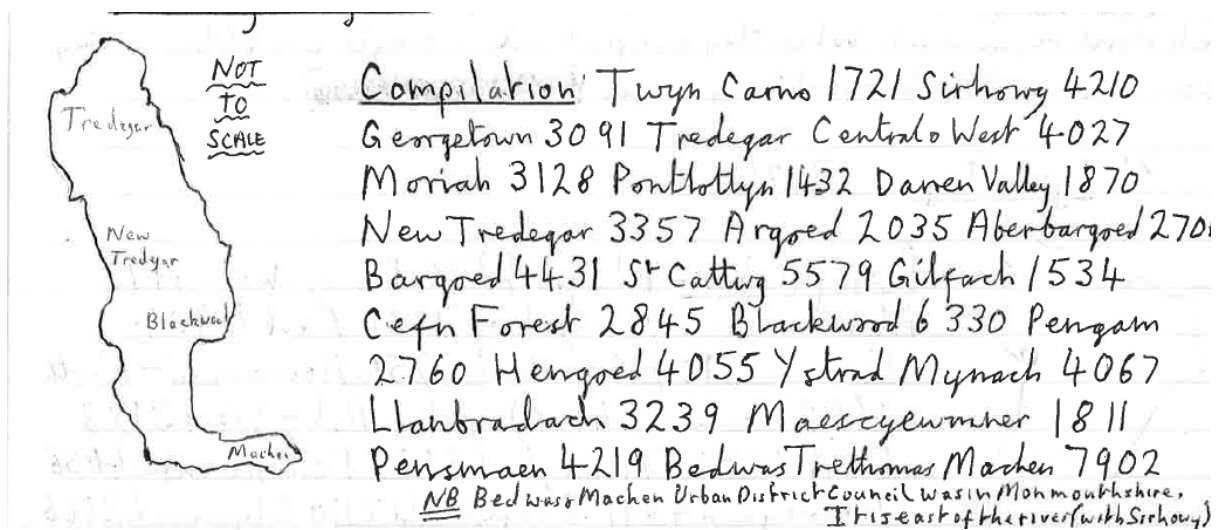 NOT
TO
SCALE
Tredegar
New
Tredegar
Blackwood
Machen
Compilation: Twyn Carno 1721 Sirhowy 4210
Georgetown 3091 Tredegar Central & West 4027
Moriah 3128 Pontlottyn 1432 Darren Valley 1870
New Tredegar 3357 Argoed 2035 Aberbargoed
Bargoed 4431 St Cattwg 5579 Gilfach 1534
Cefn Forest 2845 Blackwood 6330 Pengam
2760 Hengoed 4055 Ystrad Mynach 4067
Llanbradach 3239 Maescycwmmer 1811
Penmaen 4219 Bedwas Trethomas Machen 7902
NB Bedwas & Machen Urban District Council was in Monmouthshire.
It is east of the river (with Sirhowy)